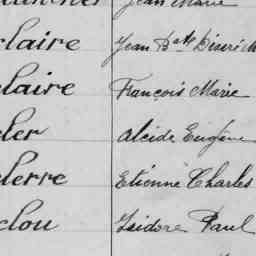 Jean Marie
claire Jean Bte Désiré M
claire François Marie
cler Alcide Eugène
clerre Etienne Charles
clou Isidore Paul